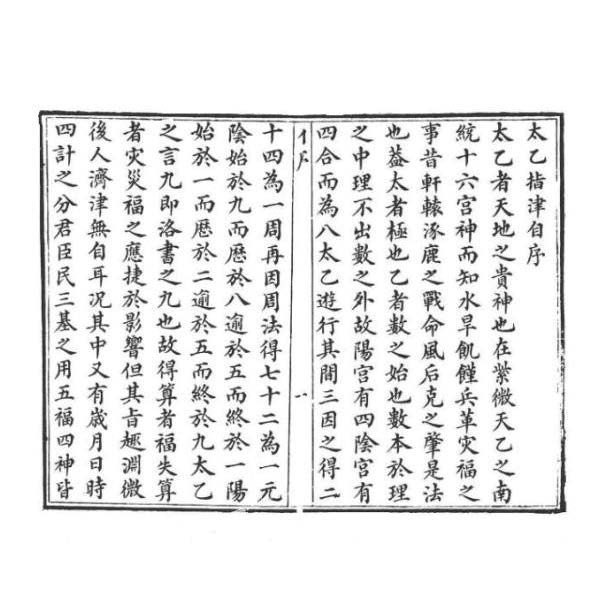 太乙指津自序
太乙者天地之貴神也在紫微天乙之南
統十六宮神而知水旱飢饉兵革灾福之
事昔軒轅涿鹿之戰命風后克之肇是法
也葢太者極也乙者數之始也數本於理
之中理不出數之外故陽宮有四陰宮有
四合而為八太乙遊行其間三因之得二
一
十四為一周再因周法得七十二為一元
陰始於九而歷於八遁於五而終於一陽
始於一而歷於二遁於五而終於九太乙
之言九即洛書之九也故得算者福失算
者灾災福之應捷於影響但其旨趣淵微
後人濟津無自耳况其中又有歲月日時
四計之分君臣民三基之用五福四神皆